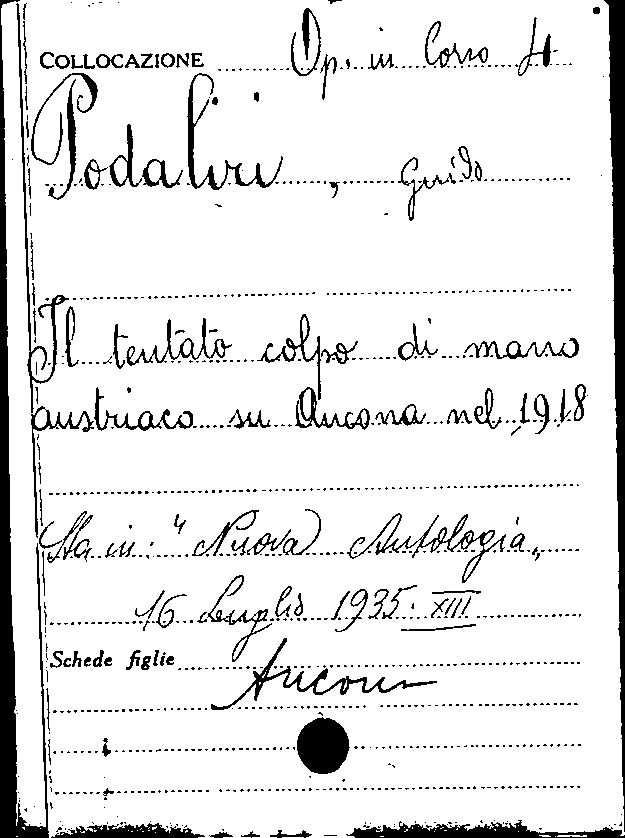 COLLOCAZIONE Op. in Corso 4
Podaliri, Guido
Il tentato colpo di mano
austriaco su Ancona nel 1918
Sta in: "Nuova Antologia„
16 Luglio 1935. XIII
Schede figlie
Ancona